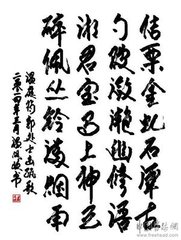 佶栗金虬石潭古
勺陂潋滟幽修语
湘君宝马上神云
碎佩丛铃满烟雨
温庭筠郭处士击瓯歌
二〇一四年三月